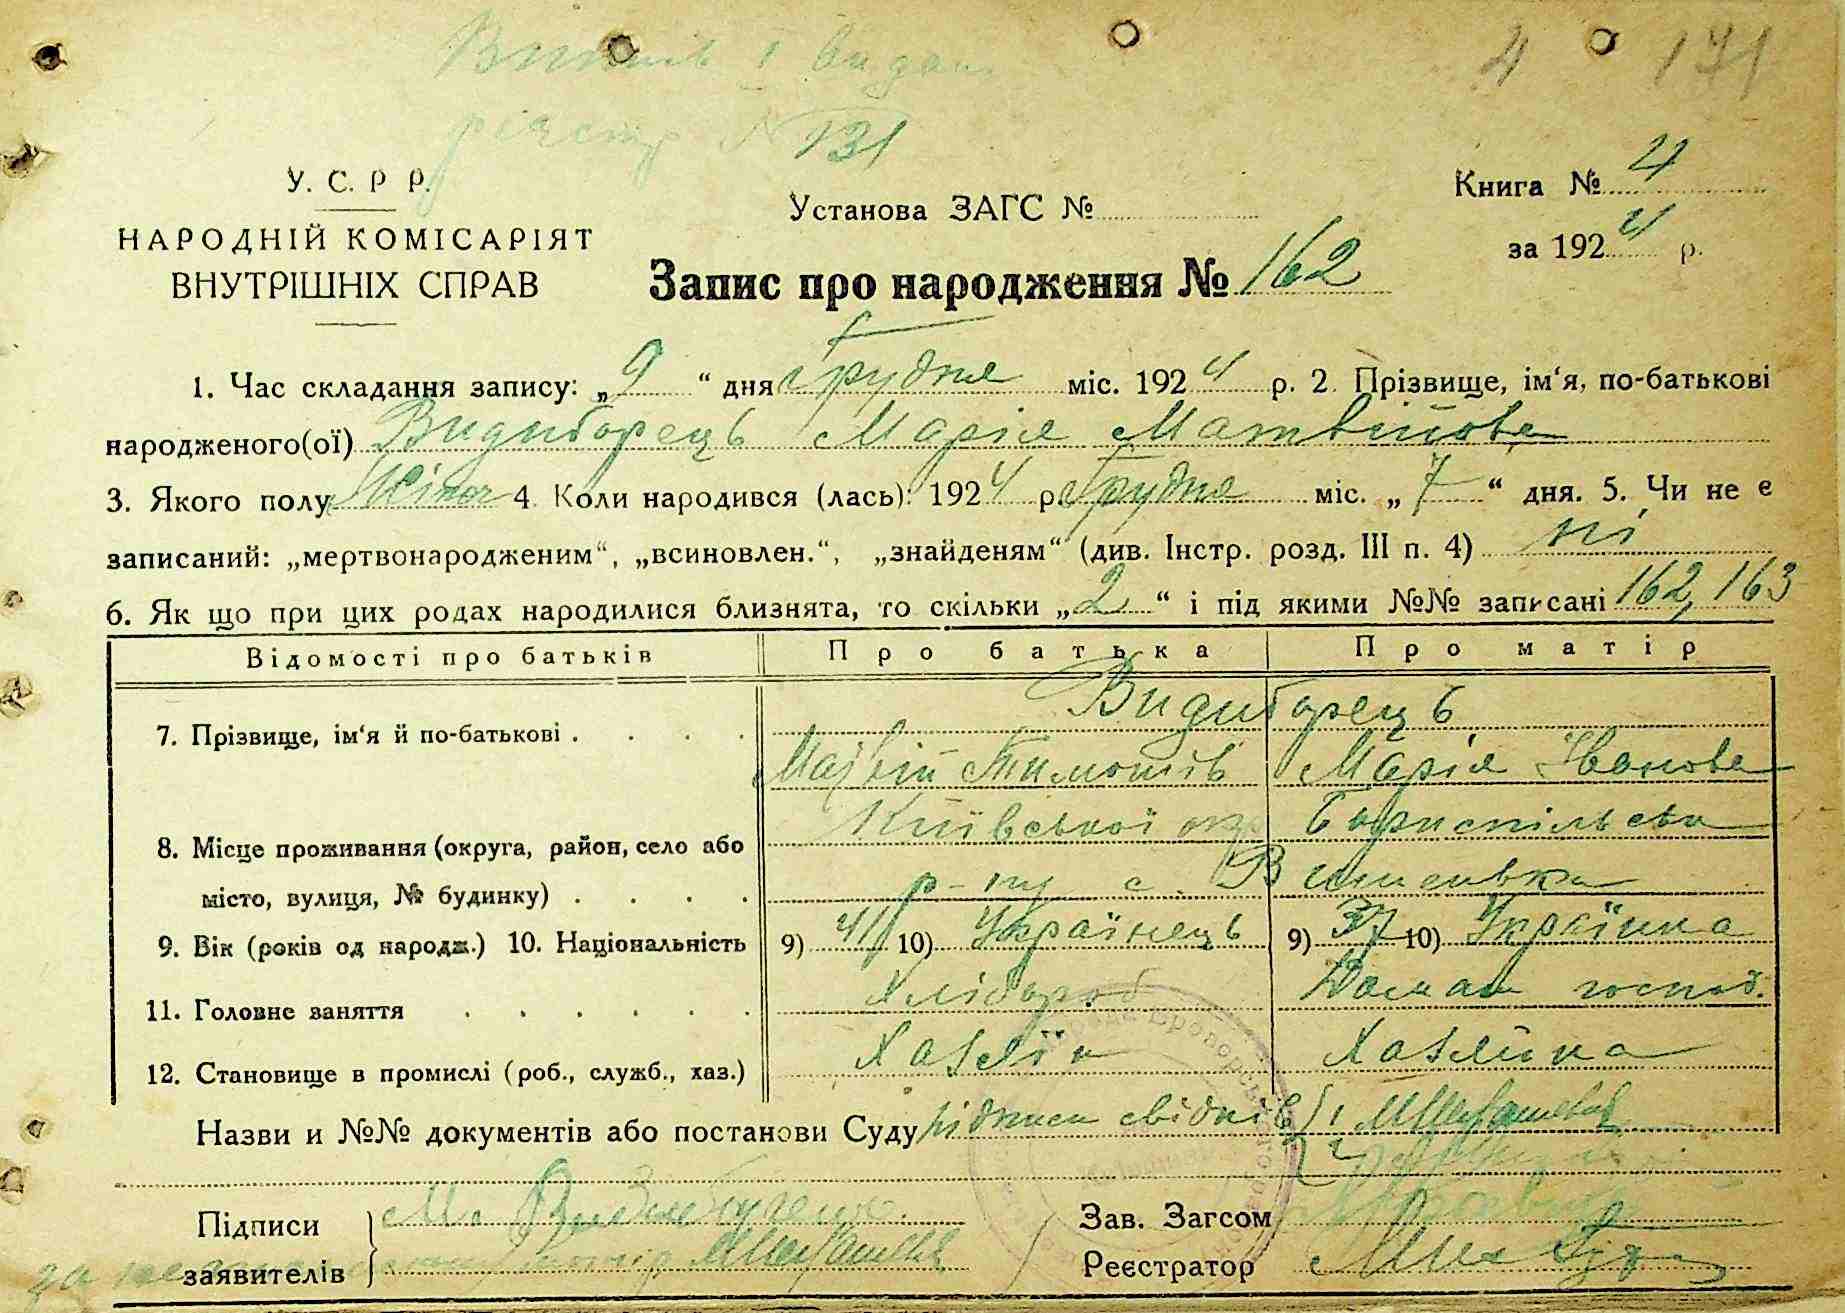 4 171
131
У. С. Р Р.
НАРОДНІЙ КОМІСАРІЯТ
ВНУТРІШНІХ СПРАВ
Установа ЗАГС №
Книга № 4
за 1924 р.
Запис про народження № 162
1. Час складання запису: „9“ дня Грудня міс. 1924 р. 2. Прізвище, ім‘я, по-батькові
народженого(ої) Видиборець Марія Матвійова
3. Якого полу Жіноч 4. Коли народився (лась): 1924 р. Грудня міс. „7“ дня. 5. Чи не є
записаний: „мертвонародженим“, „всиновлен.“, „знайденям“ (див. Інстр. розд. III п. 4) ні
6. Як що при цих родах народилися близнята, то скільки „2“ і під якими №№ записані 162, 163
Відомості про батьків Про батька Про матір
Видиборець
7. Прізвище, ім‘я й по-батькові . . . .
Матвій Тимотів Марія Іванова
Київської окр Бориспільськ
8. Місце проживання (округа, район, село або
місто, вулиця, № будинку) . . . . р-ну с.
9. Вік (років од народж.) 10. Національність 9) 41 10) Українець 9) 37 10) Українка
11. Головне заняття . . . . . . Хлібороб Домаш господ.
12. Становище в промислі (роб., служб., хаз.) Хазяїн Хазяйка
Назви и №№ документів або постанови Суду Підписи свідків 1
2
Підписи
заявителів
Зав. Загсом
Реєстратор